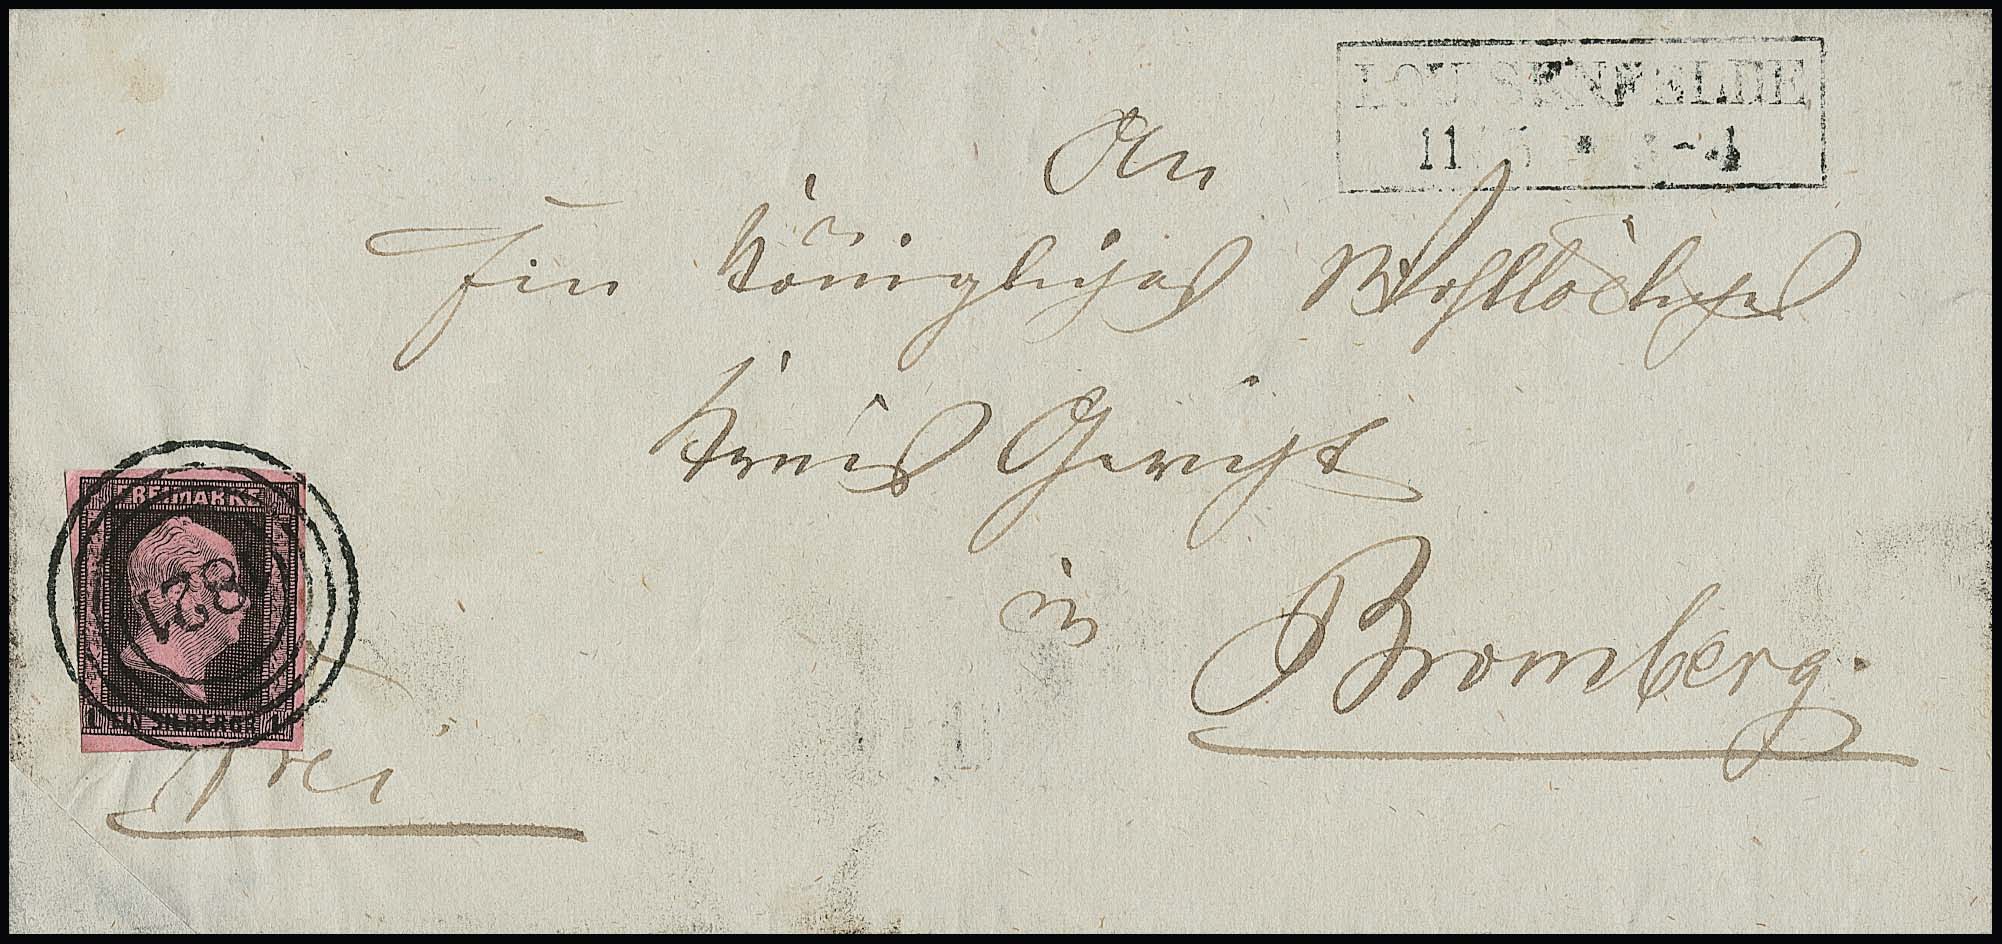 LOUISENFELDE
11 5 * 3-4
An
Ein Königliches Wohllöbliches
Kreis Gericht
in Bromberg.
FREIMARKE
821
1 EIN SILBERGR. 1
frei